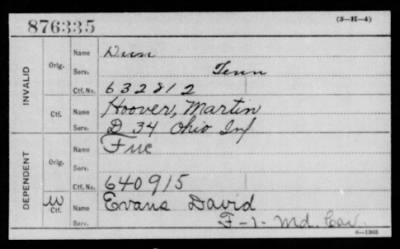 876335
(3-H-4)
INVALID
Orig.
Name
Serv. Tenn
Ctf. No. 632812
Ctf.
Name Hoover, Martin
Serv. D 34 Ohio Inf
DEPENDENT
Orig.
Name
Serv.
Ctf. No. 640915
W
Ctf.
Name Evans David
Serv. F-1-Md. Cav.